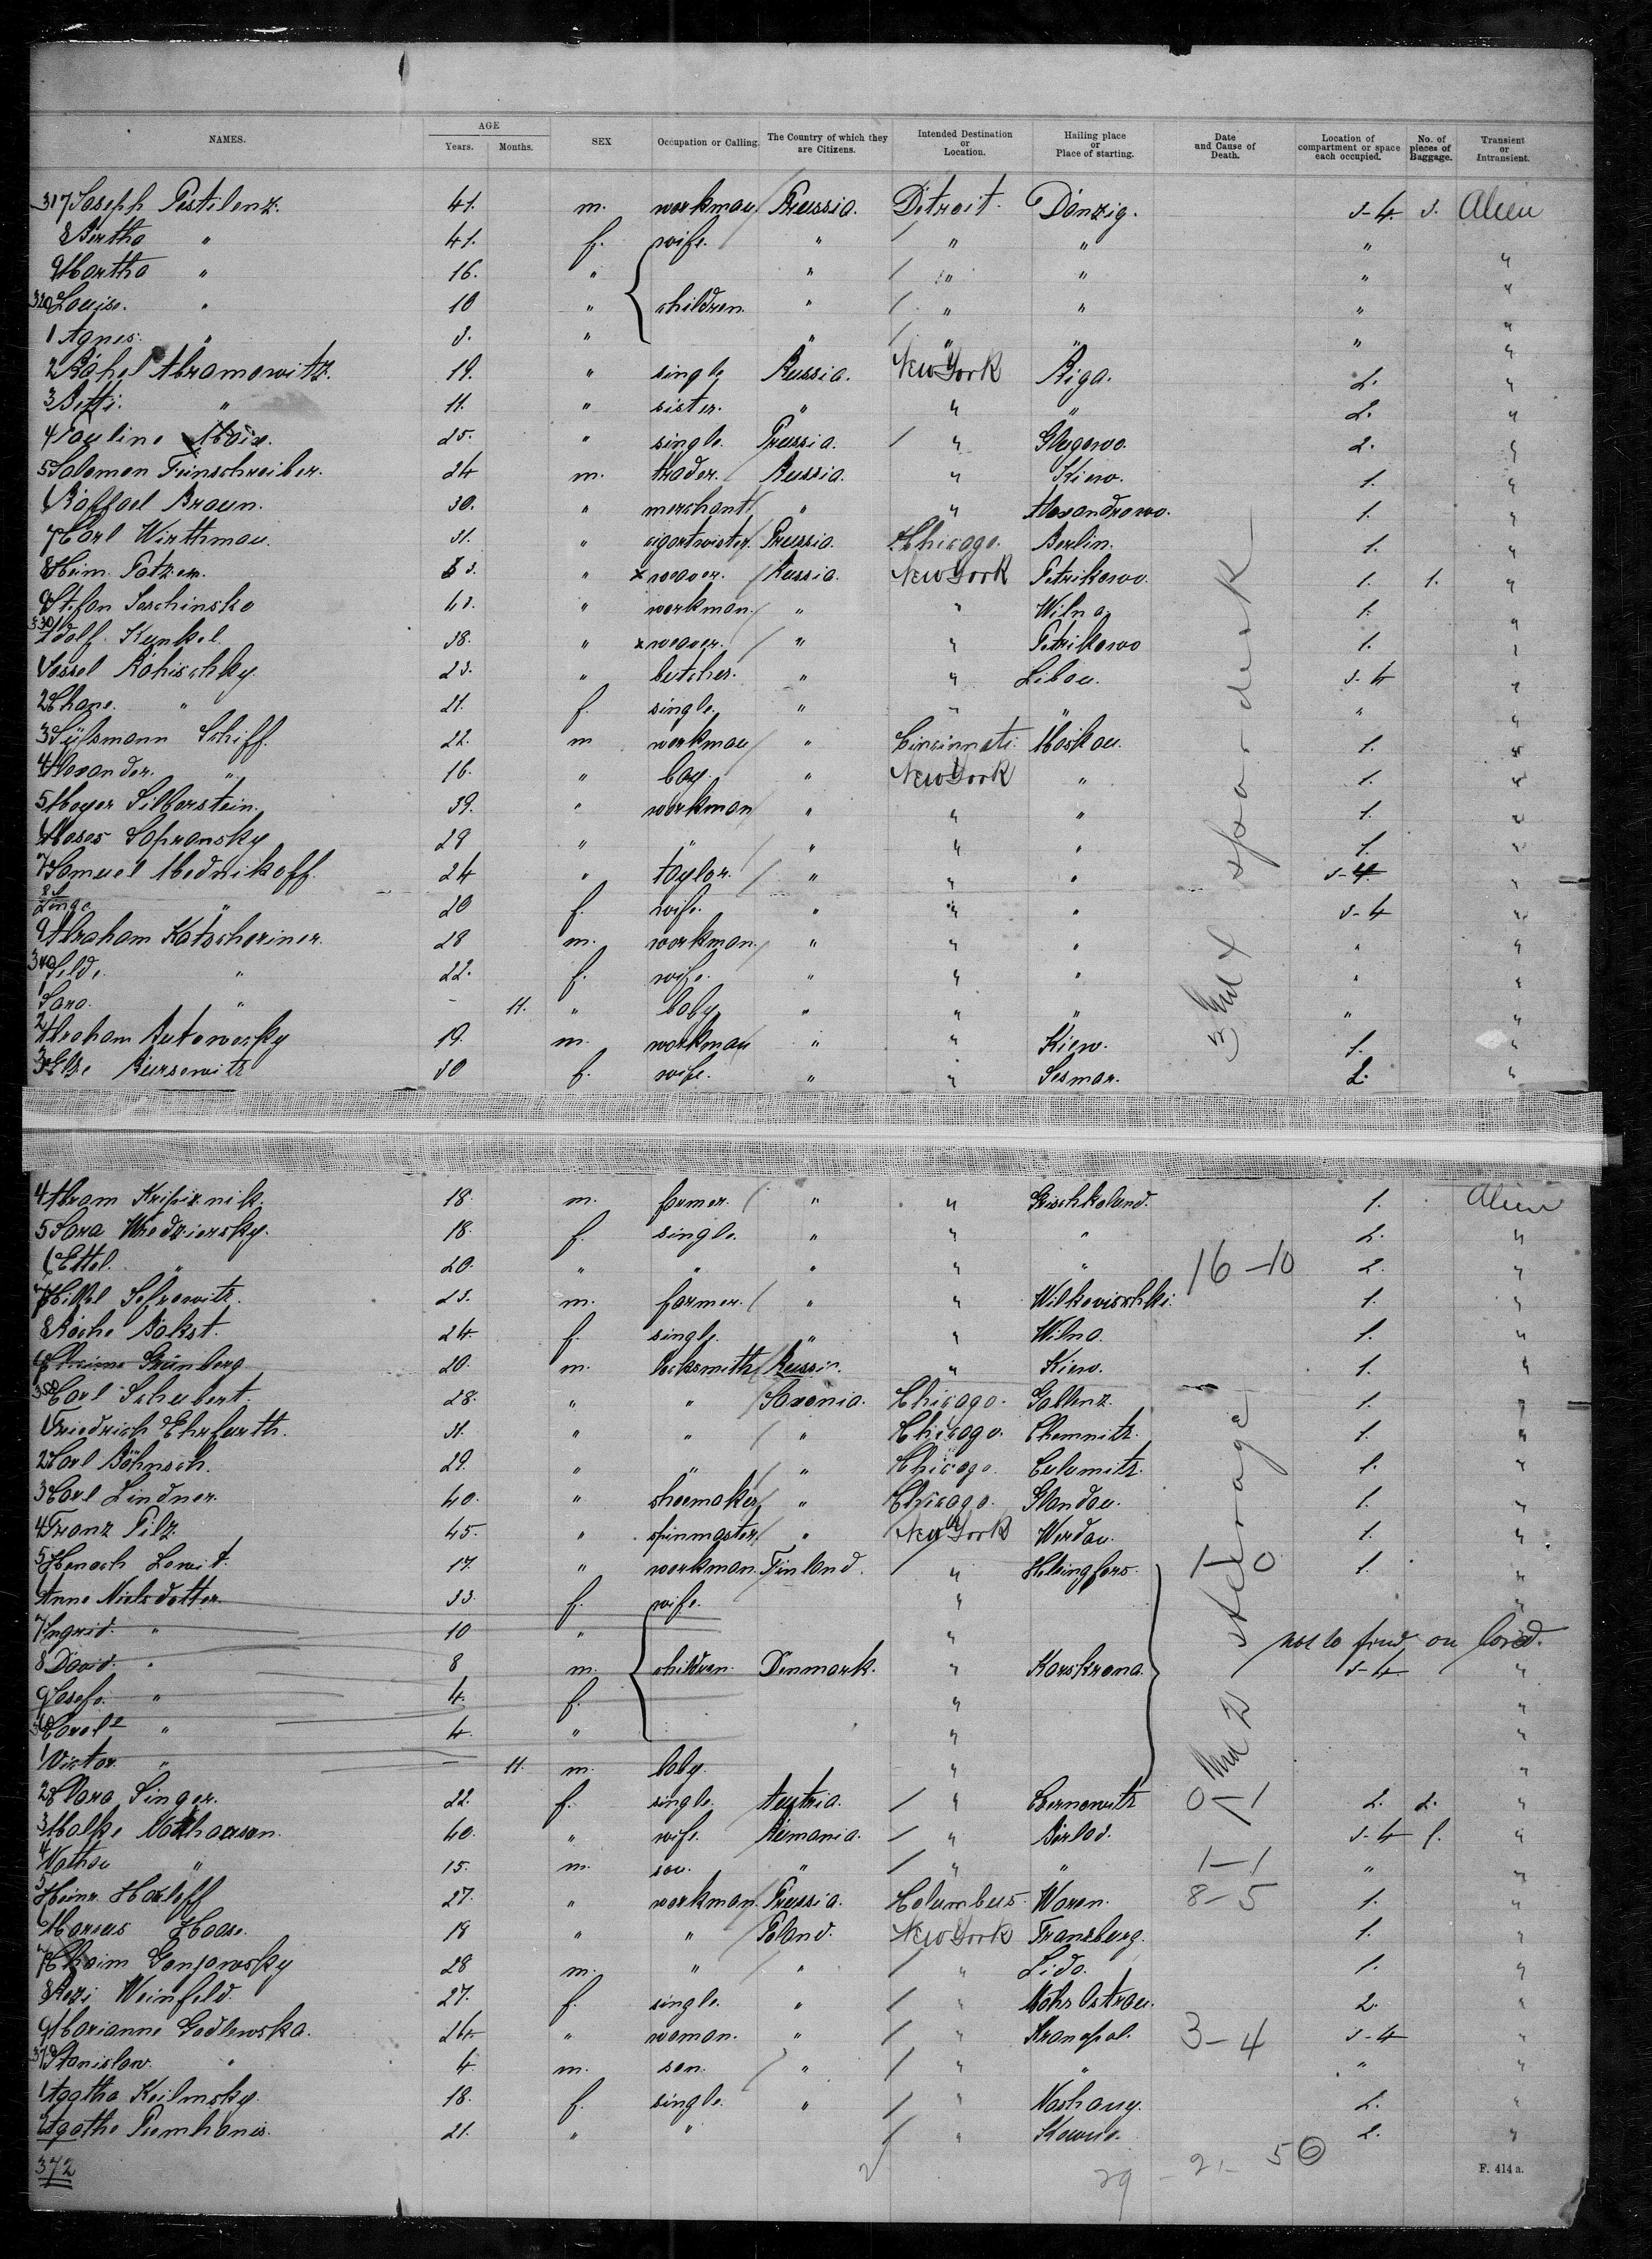 NAMES. AGE Years. Months. SEX Occupation or Calling. The Country of which they are Citizens. Intended Destination or Location. Hailing place or Place of starting. Date and Cause of Death. Location of compartment or space each occupied. No. of pieces of Baggage. Transient or Intransient.
317 Joseph Pestilenz. 41. m. workman / Prussia. Detroit. Danzig. 3-4. 3. Alien
8 Bertha " 41. f. wife. " / " " " "
9 Martha " 16. " " / " " " "
320 Louise. " 10 " children. " / " " " "
1 Agnes. " 3. " " / " " " "
2 Rahel Abramowitz. 19. " single Russia. New York Riga. 2. "
3 Betti. " 11. " sister. " " " 2. "
4 Pauline 25. " single. Prussia. / " 2. "
5 Salomon Feinschreiber. 24 m. trader. / Russia. " Kiew. 1. "
6 Raffael Braun. 30. " merchant / " " Alexandrowo. 1. "
7 Carl Wirthman. 31. " cigartwister. / Prussia. Chicago. Berlin. 1. "
8 Heim. Patzer. " x weaver. / Russia. New York Petrikowo. 1. 1. "
9 Stefan 43. " workman. / " " Wilna 1. "
330 Adolf Kunkel. 38. " x weaver. / " " Petrikowo 1. "
1 Jossel 23. " butcher. " " Libau. 3-4 "
2 Chane. " 21. f. single. " " " " "
3 Schiff. 22. m workman / " Cincinnati. Moskau. 1. "
4 Alexander. " 16. " boy. " New York " 1. "
5 Meyer Silberstein. 39. " workman " " " 1. "
6 Moses Sapransky 29 " " / " " " 1. "
7 Samuel Mednikoff. 24 " taylor. / " " " 3-4 "
8 " 20 f. wife. " " " 3-4 "
9 Abraham Katscheriner. 28 m. workman. / " " " " "
340 Selde. " 22. f. wife. " " " " "
1 Sara. " - 11. " baby " " " " "
2 Abraham Butowesky 19. m. workman " " Kiew. 1. "
3 Else 30 f. wife. " " 2. "
spardeck
4 Abram 18. m. farmer. / " " 1. Alien
5 Sara 18. f. single. " " " 2. "
6 Ettel. " 20. " " " " " 16-10 2. "
7 23. m. farmer. / " " Wilkowischki. 1. "
8 Roche Bakst. 24 f. single. " " Wilna. 1. "
9 Chaime Grünberg 20. m. locksmith / Russia. " Kiew. 1. "
350 Carl Schubert. 28. " " / Saxonia. Chicago. Gablenz. 1. "
1 Friedrich Ehrfurth. 31. " " / " Chicago. Chemnitz. 1. "
2 Carl Böhnsch. 29. " " / " Chicago. 1. "
3 Carl Lindner. 40. " shoemaker / " Chicago. 1. "
4 Franz Pilz 45. " spinmaster / " New York Werdau. 1. "
5 Henoch Lewit. 17. " workman. Finland. / " Helsingfors. 1. "
6 Anne Nielsdotter. 33. f. wife. " "
7 Ingrid. " 10 " " not to find on board.
8 David. " 8 m. children. Denmark. " Karskrona. 3-4 "
9 Josefa. " 4. f. " "
360 " 4. " " "
1 Victor. " - 11. m. baby. " "
steerage
2 Clara Singer. 22. f. single. Austria. / " Czernowitz 0-1 2. 2. "
3 Malke Nathanson. 40. " wife. Rumania. / " Birlad. 3-4 1. "
4 Nathan " 15. m. son. " / " " 1-1 " "
5 Heinr. Harloff 27. " workman. / Prussia. Columbus. Waren. 8-5 1. "
6 Marcus Haase. 18 " " / Poland. New York Franzburg. 1. "
7 Chaim 28 m. " / " / " Lida. 1. "
8 Rezi Weinfeld. 27. f. single. " / " Mähr Ostrau. 2. "
9 Marianne Godlewska. 24 " woman. " / " 3-4 3-4 "
370 Stanislaw. " 4. m. son. / " / " " " "
1 Agatha 18. f. single. " / " 2. "
2 Agathe 21. " " / " Kowno. 2. "
372
29 - 21 - 56
F. 414 a.